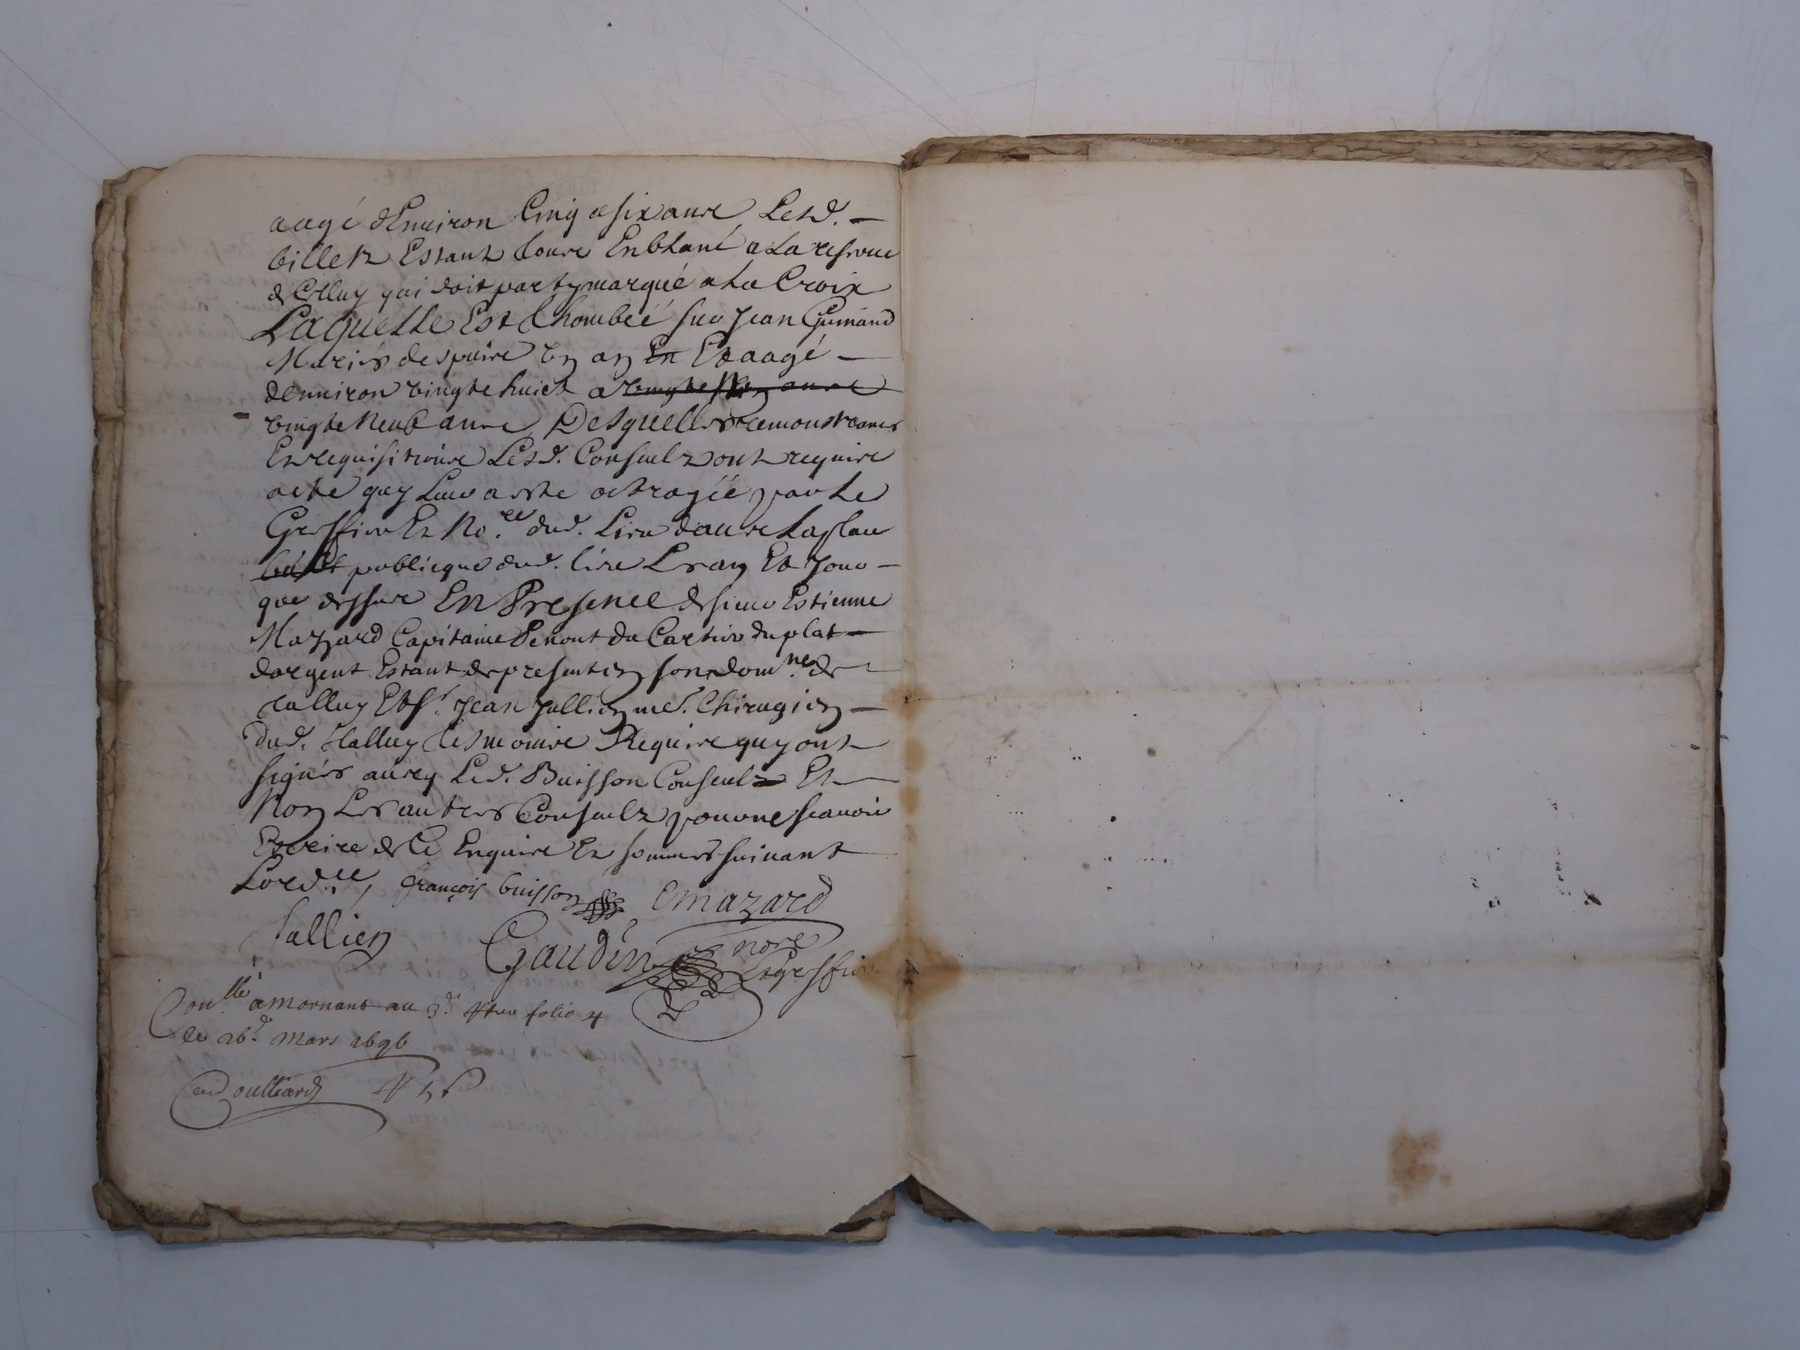 aagé d'Enuiron Cinq a six ans Lesd. —
billetz Estant tous En blanc a la reserue
de Celluy qui doit party marqué a La Croix
Laquelle Est thombéé sur Jean
Mariés despuis Un an Et aagé —
denuiron vingte huict a
vingte Neuf ans Desquelles remonstrances
Et requisitions Lesd. Consulz ont requis
acte quy Leur a esté octroyée par Le
Greffier Et No.re dud. Lieu dans La place
publicque dud. lieu Les an Et Jour —
que dessus En Presence de sieur Estienne
Mazard Capitaine Penont du Cartier du plat —
dargent Estant de present En son dom.ne de
talluy Et s.r Jean Jullien me. Chirugien —
dud. talluy tesmoins Requis quy ont
signés auecq Led. Buisson Consul Et —
Non Les autres Consulz pour ne scauoir
Escrire de Ce Enquis Et sommés suiuant
Lord.ce, françois buisson Emazard
Jullien Gaudin nore
Legreffier
Con.llé a Mornant au 3.e folio 4
le 26.e Mars 1696